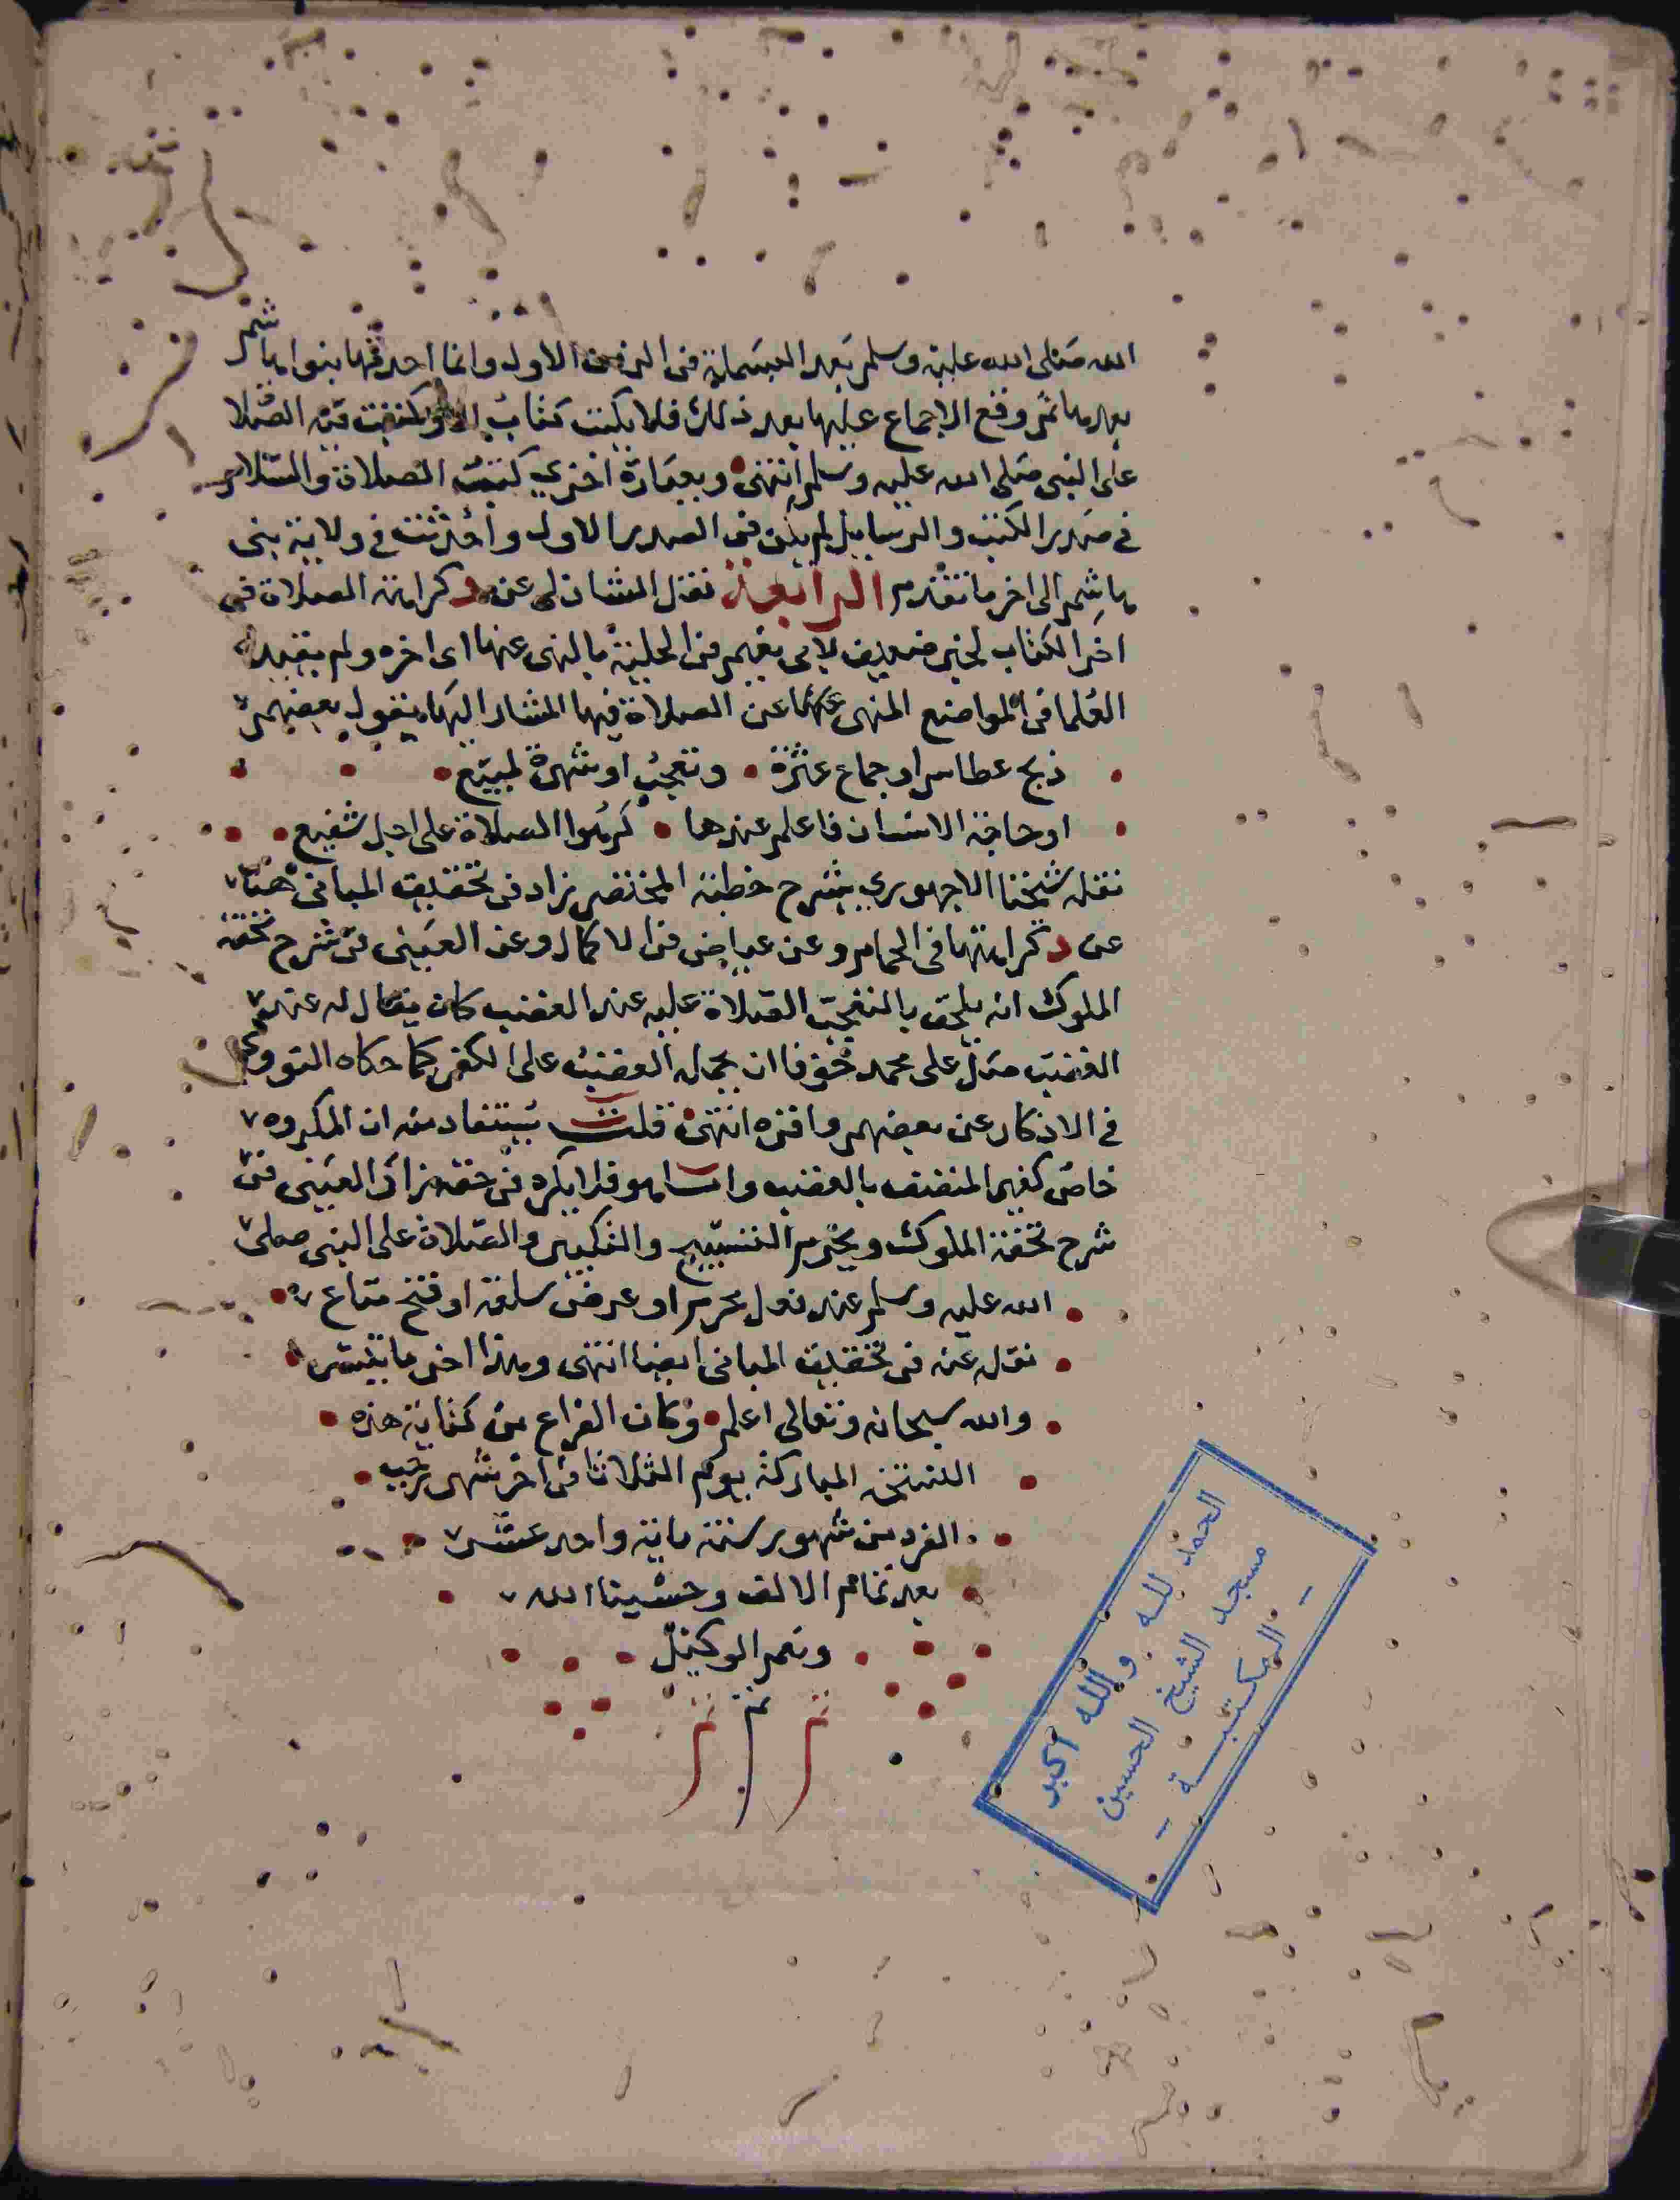 الله صلى الله عليه وسلم بعد البسملة فى الزمن الاول وانما احدثها بنوا هاشم
بعد هاثم وقع الاجماع عليها بعد ذلك فلا يكتب كتاب الا وكتبت فيه الصلاة
على النبى صلى الله عليه وسلم انتهى وبعبارة اخري كتبت الصلاة والسلام
فى صدر الكتب والرسايل لم يكن فى الصدر الاول واحدثت فى ولاية بنى
هاشم الى اخر ما تقدم الرابعة نقل الشاذلى عن د كراهة الصلاة فى
اخر الكتاب لخبر ضعيف لابى نعيم فى الحلية بالنهى عنها اى اخره ولم يقيده
العلما فى المواضع المنهى عنها عن الصلاة فيها المشار اليها بقول بعضهم
ذبح عطاس او جماع عثرة وتعجب او شهرة لمبيع
او حاجة الانسان فاعلم عندها كرهوا الصلاة على اجل شفيع
نقله شيخنا الاجهوري بشرح خطبة المختصر زاد فى تحقيق المبانى هنا
عن د كراهتها فى الحمام وعن عياض فى الاكمال وعن العينى فى شرح تحفة
الملوك انه يلحق بالتعجب الصلاة عليه عند الغضب كان يقال له عند
الغضب صل على محمد خوفا ان يحمله الغضب على الكفر كما حكاه النووى
فى الاذكار عن بعضهم واقره انتهى قلت يستفاد منه ان المكروه
خاص كغير المتصف بالغضب واما هو فلا يكره فى حقه زاد العينى فى
شرح تحفة الملوك ويحرم التسبيح والتكبير والصلاة على النبى صلى
الله عليه وسلم عند فعل محرم او عرض سلعة او فتح متاع
نقله عنه فى تحقيق المبانى ايضا انتهى وهذا اخر ما تيسر
والله سبحانه وتعالى اعلم وكان الفراغ من كتابة هذه
النسخة المباركة يوم الثلاثا فى اخر شهر رجب
الفرد من شهور سنة ماية واحد عشر
بعد تمام الالف وحسبنا الله
ونعم الوكيل
تم تم تم
الحمد لله والله اكبر
مسجد الشيخ الحسين
- المكتبة -